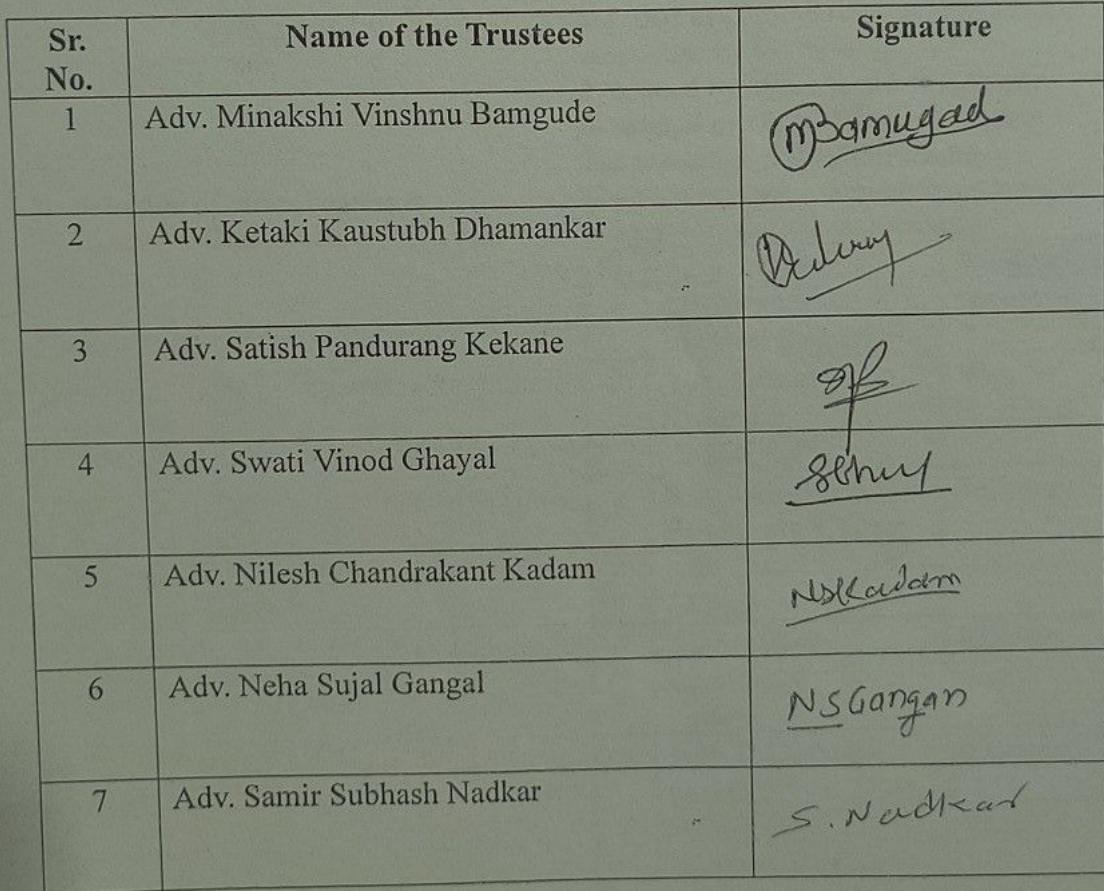 Sr. No. Name of the Trustees Signature
1 Adv. Minakshi Vinshnu Bamgude MBamugad
2 Adv. Ketaki Kaustubh Dhamankar
3 Adv. Satish Pandurang Kekane
4 Adv. Swati Vinod Ghayal
5 Adv. Nilesh Chandrakant Kadam NSKadam
6 Adv. Neha Sujal Gangal NSGangan
7 Adv. Samir Subhash Nadkar S. Nadkar